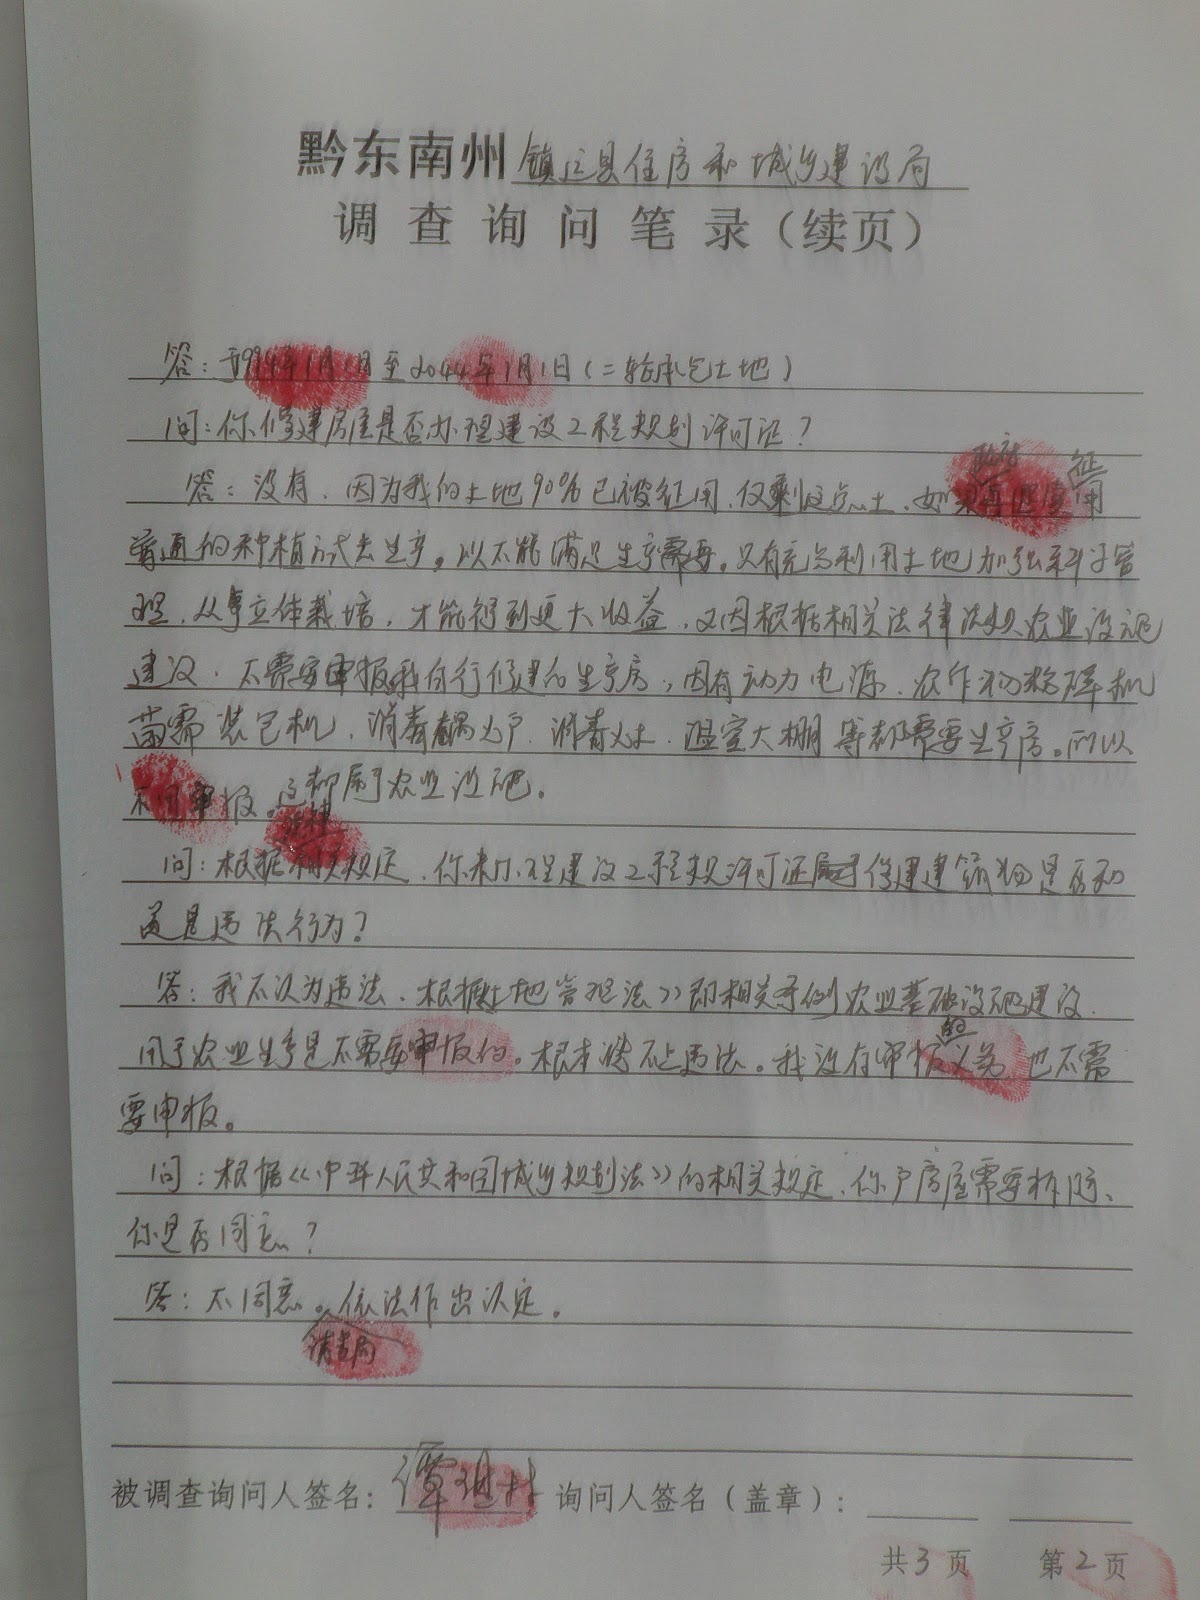 黔东南州镇远县住房和城乡建设局
调查询问笔录（续页）
答：于1994年1月1日至2044年1月1日（二轮承包土地）
问：你修建房屋是否办理建设工程规划许可证？
答：没有，因为我的土地90%已被征用，仅剩这点土，如果再 用
征
普通的种植方式去生产。以不能满足生产需要。只有充分利用土地加强科学管
理，从事立体栽培，才能得到更大收益，又因根据相关法律法规农业设施
建设，不需要申报我自行修建的生产房，因有动力电源、农作物粉碎机
菌需装包机，消毒锅炉、消毒灶，温室大棚等都需要生产房。所以
不 申报。这都属于农业设施。
问：根据相关规定，你未办理建设工程规许可证 修建建筑物是否知
道是违法行为？
答：我不认为违法，根据土地管理法》即相关条例农业基础设施建设
的
用于农业生产是不需要申报的。根本谈不上违法。我没有申报义务 也不需
要申报。
问：根据《中华人民共和国城乡规划法》的相关规定，你户房屋需要拆除、
你是否同意？
答：不同意。依法作出决定。
请贵局
被调查询问人签名： 询问人签名（盖章）：
共3页 第2页